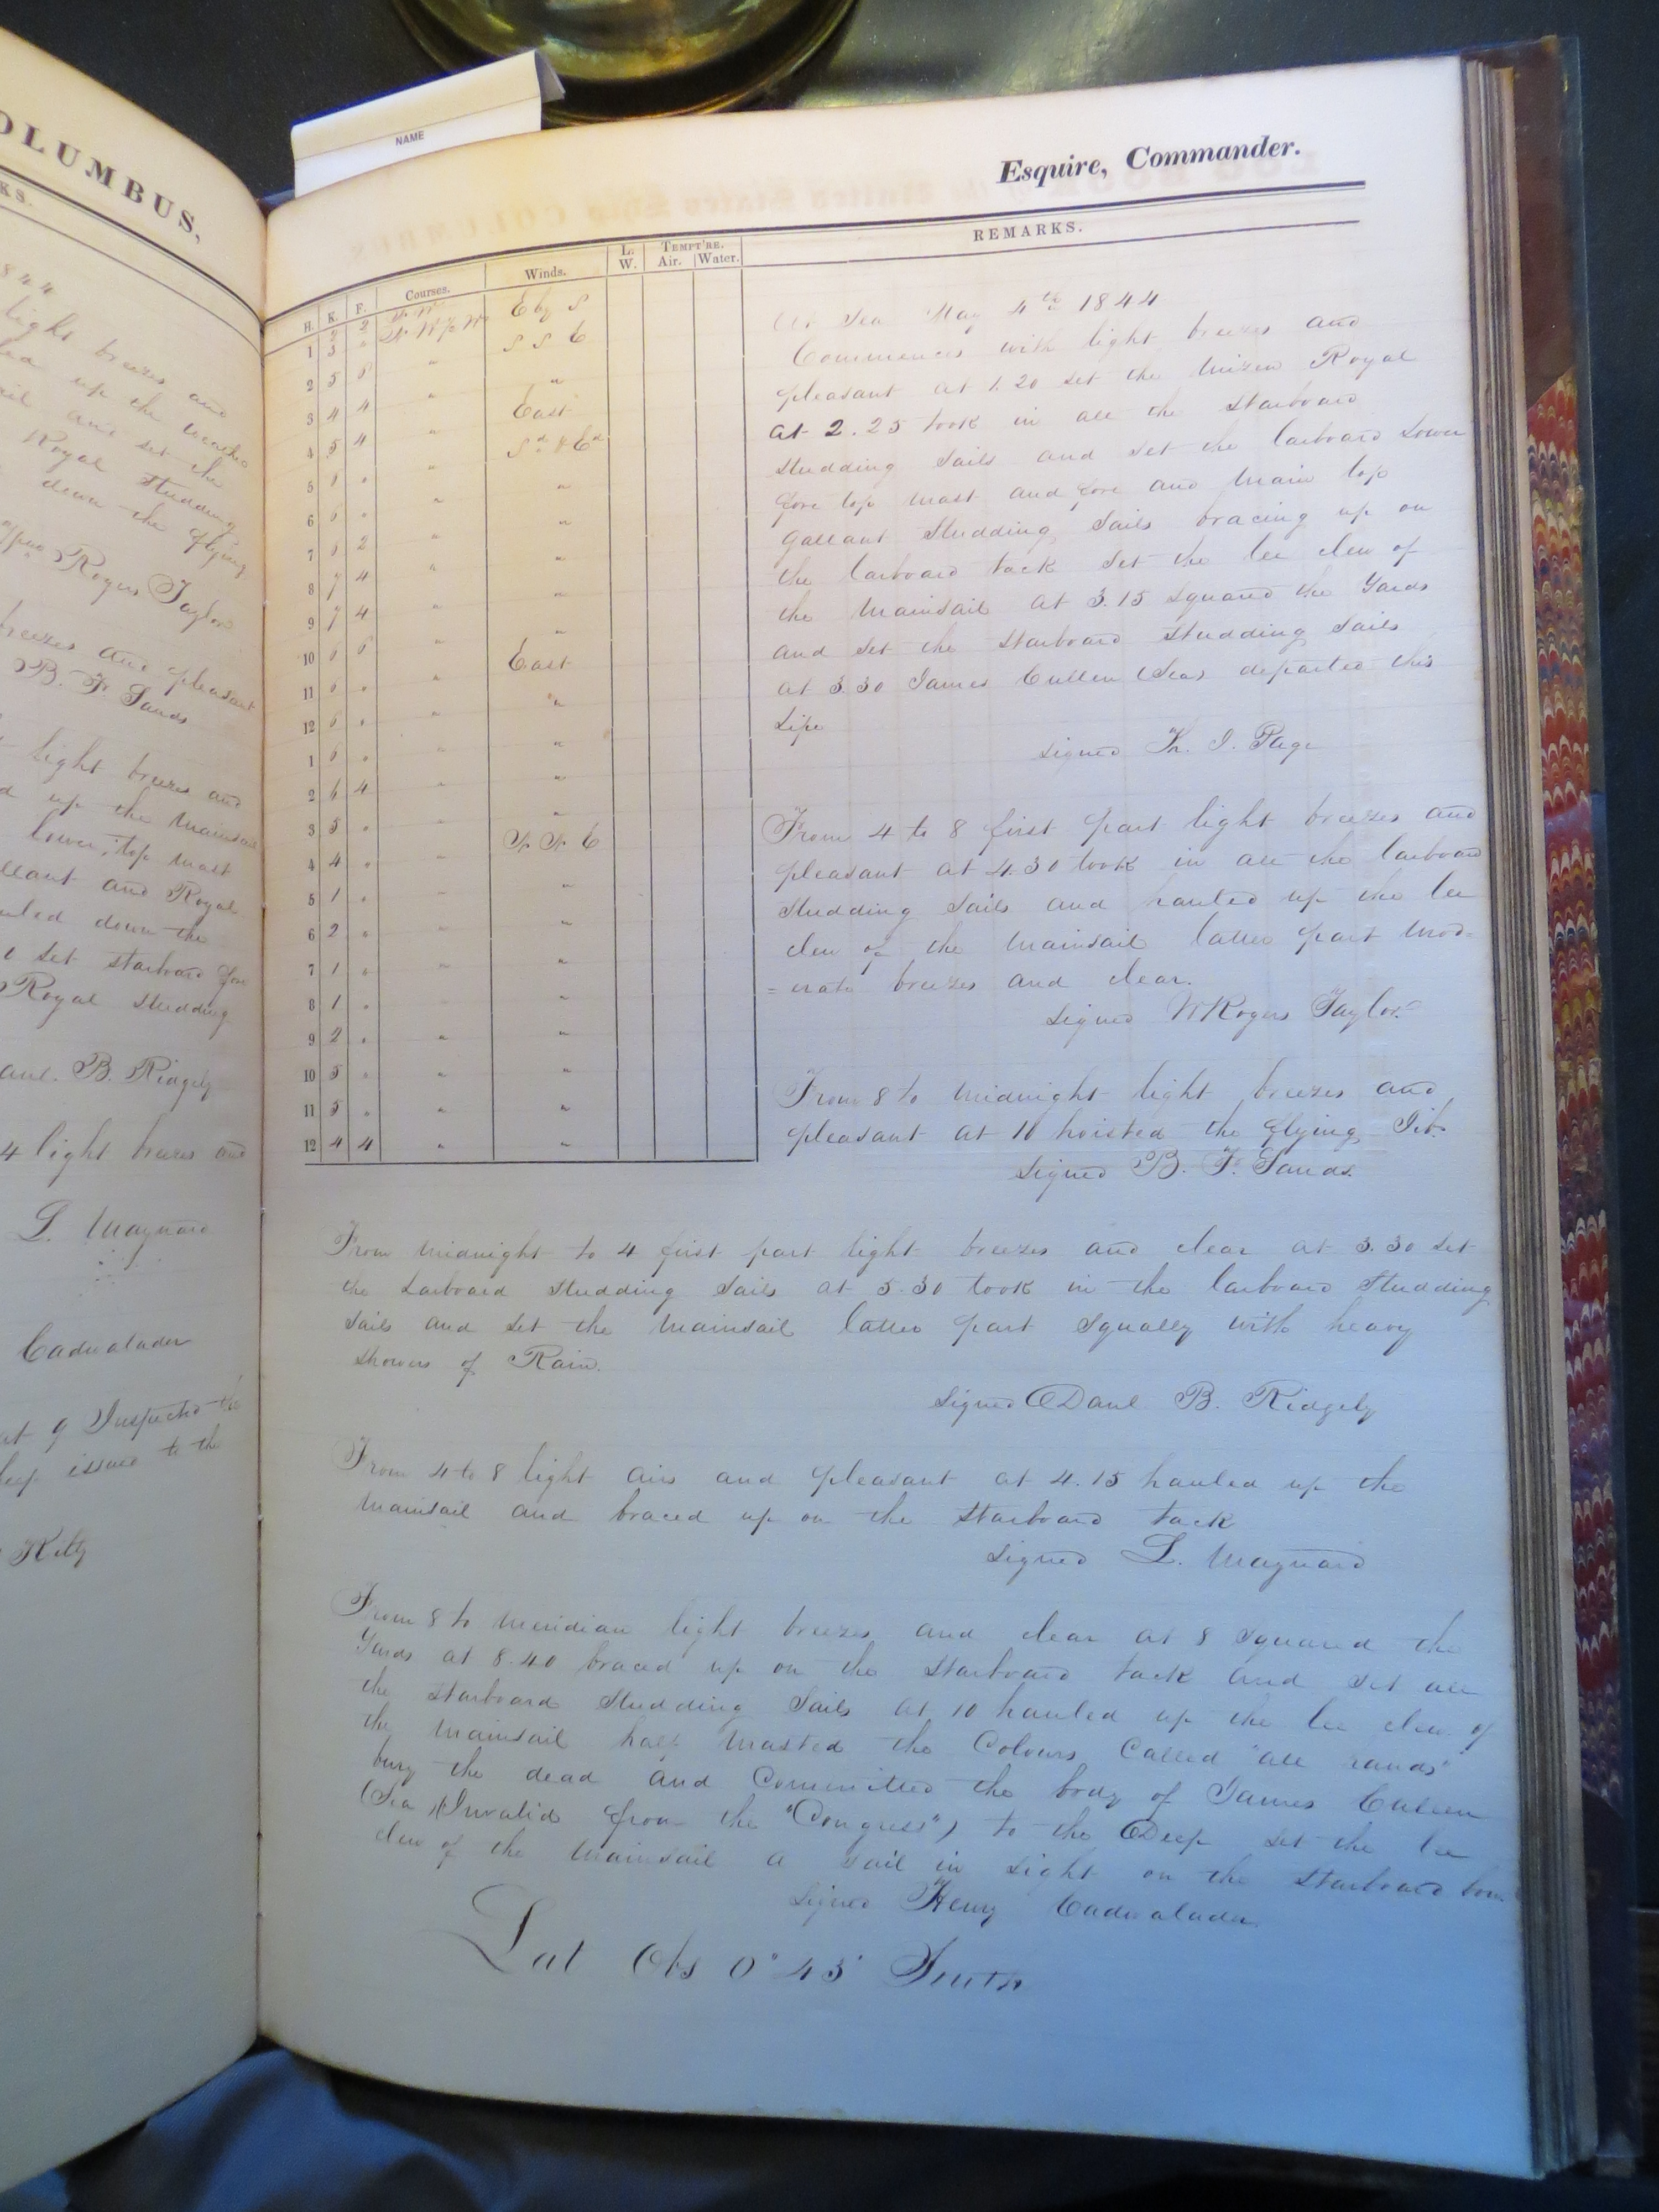 OLUMBUS,
KS.
1844
light breezes and
up the weather
and set the
Royal Studding
down the flying
Rogers Taylor
breezes and pleasant
B. F. Sands
light breezes and
up the mainsail
lower, top mast
gallant and Royal
hauled down the
set starboard fore
Royal studding
Danl. B. Ridgely
4 light breezes and
L. Maynard
Cadwalader
at 9 Inspected the
issued to the
Kelly
NAME
Esquire, Commander.
H. K. F. Courses. Winds. L. W. TEMPT'RE. Air. Water. REMARKS.
2 2 N W E by S
1 3 " N W ½ W S S E
2 5 6 " "
3 4 4 " East
4 5 4 " Sd & Ed
5 " "
6 6 " "
7 2 " "
8 7 4 " "
9 7 4 " "
10 6 6 " East
11 6 " "
12 6 " "
1 6 " "
2 6 4 " "
3 5 " N N E
4 4 " "
5 1 " "
6 2 " "
7 1 " "
8 1 " "
9 2 " "
10 5 " "
11 5 " "
12 4 4 " "
At Sea May 4th 1844
Commences with light breezes and
pleasant at 1.20 set the Mizen Royal
at 2.25 took in all the starboard
studding sails and set the larboard Lower
fore top mast and fore and main top
gallant studding sails bracing up on
the larboard tack set the lee clew of
the mainsail at 3.15 squared the Yards
and set the starboard studding sails
at 3.30 James Cullen (Sea) departed this
Life
Signed Page
From 4 to 8 first part light breezes and
pleasant at 4.30 took in all the larboard
studding sails and hauled up the lee
clew of the mainsail latter part mod=
=erate breezes and clear.
Signed W Rogers Taylor
From 8 to midnight light breezes and
pleasant at 10 hoisted the flying Jib.
Signed B. F. Sands.
From midnight to 4 first part light breezes and clear at 3.30 set
the Larboard studding sails at 3.30 took in the larboard studding
sails and set the mainsail latter part squally with heavy
showers of Rain.
Signed Danl B. Ridgely
From 4 to 8 light airs and pleasant at 4.15 hauled up the
mainsail and braced up on the starboard tack
Signed L. Maynard
From 8 to meridian light breezes and clear at 8 squared the
Yards at 8.40 braced up on the starboard tack and set all
the starboard studding sails at 10 hauled up the lee clew of
the mainsail half masted the Colours Called "all hands"
bury the dead and Committed the body of James Cullen
(Sea) (Invalid from the "Congress") to the Deep set the lee
clew of the mainsail a sail in sight on the starboard bow
Signed Henry Cadwalader
Lat Obs 0° 45' South